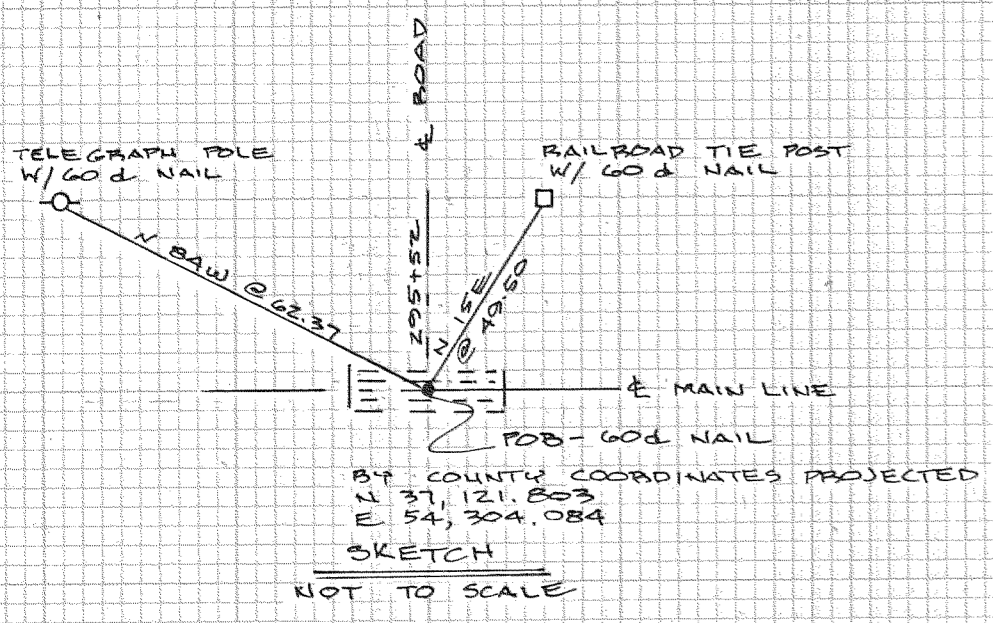 ℄ ROAD
TELEGRAPH POLE
W/ 60 d NAIL
RAILROAD TIE POST
W/ 60 d NAIL
N 84W @ 62.37
295+52
N 15E
@ 49.50
℄ MAIN LINE
POB - 60d NAIL
BY COUNTY COORDINATES PROJECTED
N 37,121.803
E 54,304.084
SKETCH
NOT TO SCALE